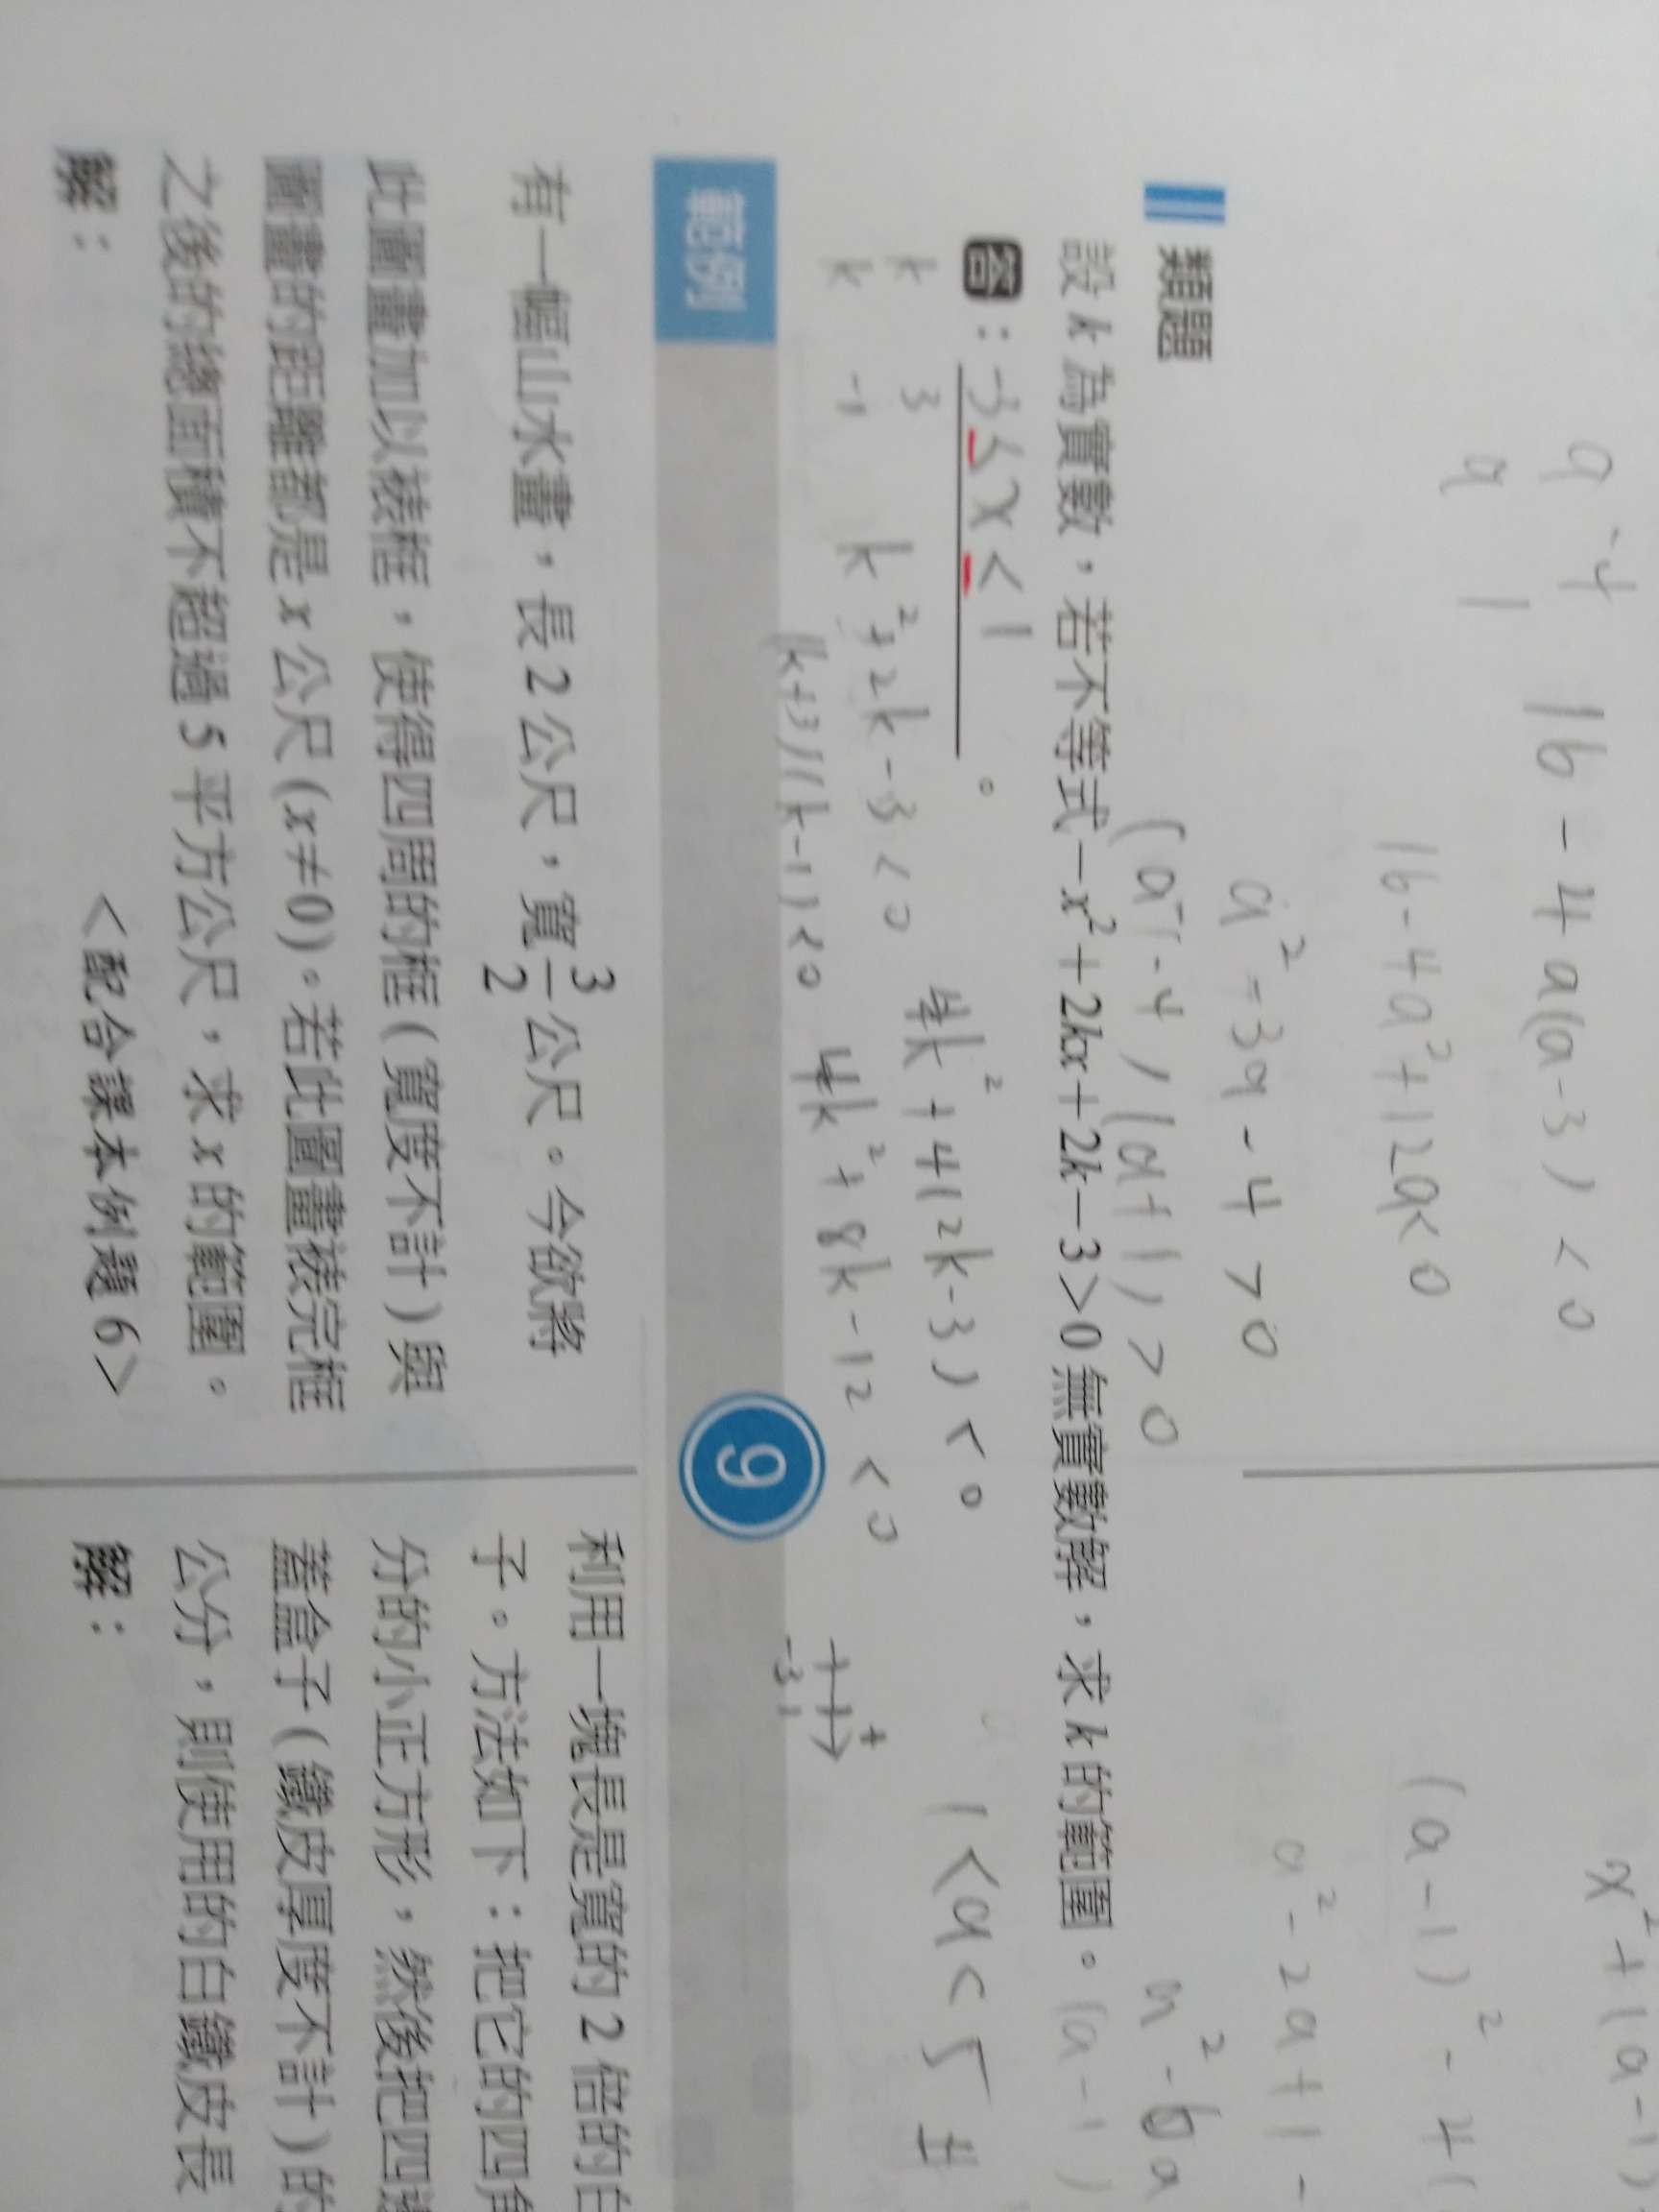 a -4
a 1
16-4a(a-3)<0
16-4a²+12a<0
a²-3a-4>0
(a-4)(a+1)>0
x²+(a-1)
(a-1)²-4(
a²-2a+1-
a²-6a
(a-1)
1<a<5 #
類題
設k為實數，若不等式－x²＋2kx＋2k－3＞0無實數解，求k的範圍。
答：-3≤x≤1。
k 3
k -1
k²+2k-3<0
(k+3)(k-1)<0
4k²+4(2k-3)<0
4k²+8k-12<0
+
-3 1
範例
9
有一幅山水畫，長2公尺，寬3/2公尺。今欲將
此圖畫加以裱框，使得四周的框(寬度不計)與
圖畫的距離都是x公尺(x≠0)。若此圖畫裱完框
之後的總面積不超過5平方公尺，求x的範圍。
<配合課本例題6>
解：
利用一塊長是寬的2倍的白
子。方法如下：把它的四角
分的小正方形，然後把四邊
蓋盒子(鐵皮厚度不計)的
公分，則使用的白鐵皮長
解：